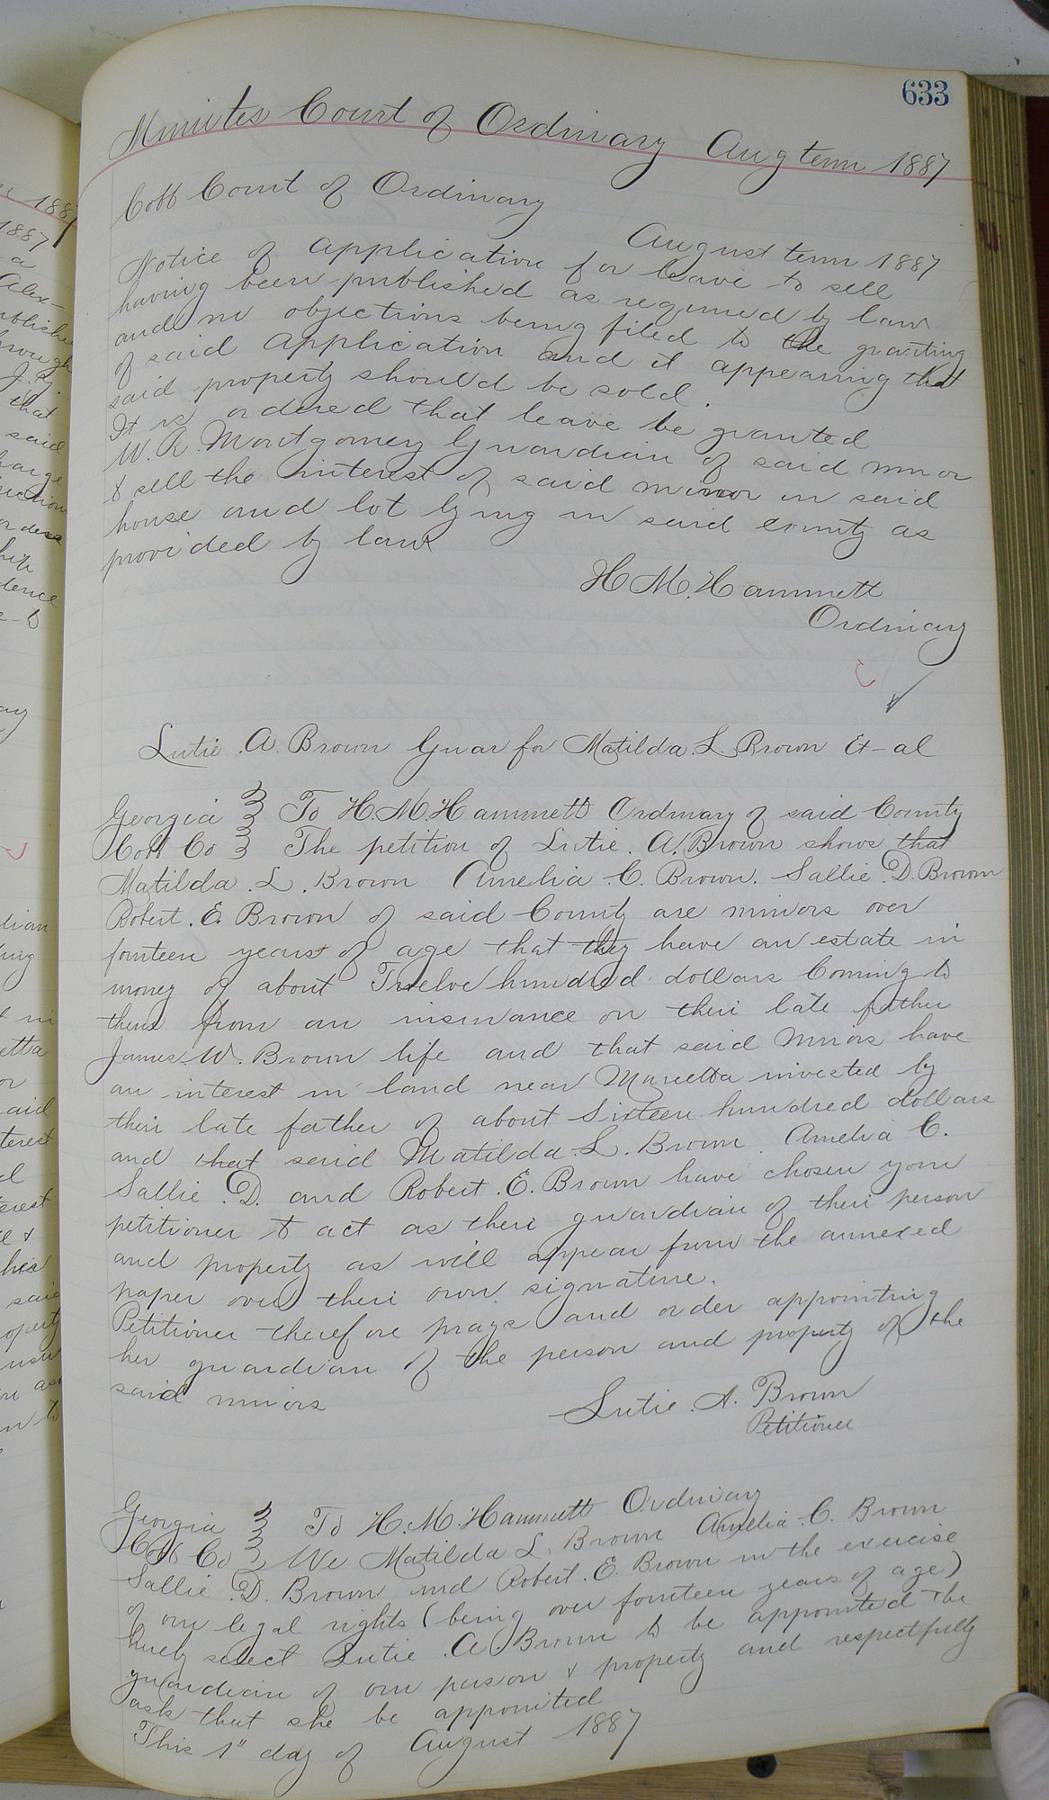 633
Minutes Court of Ordinary Aug term 1887
Cobb Court of Ordinary
August term 1887
Notice of application for leave to sell
having been published as required by law
and no objections being filed to the granting
of said application and it appearing that
said property should be sold.
It is ordered that leave be granted
W. R. Montgomery Guardian of said minor
to sell the interest of said minor in said
house and lot lying in said county as
provided by law
H M. Hammett
Ordinary
Lutie A. Brown Guar for Matilda L Brown Et-al
Georgia } To H. M. Hammett Ordinary of said County
Cobb Co } The petition of Lutie. A. Brown shows that
Matilda. L. Brown Amelia. C. Brown. Sallie. D. Brown
Robert. E. Brown of said County are minors over
fourteen years of age that they have an estate in
money of about Twelve hundred dollars Coming to
them from an insurance on their late father
James. W. Brown life and that said Minors have
an interest in land near Marietta invested by
their late father of about Sixteen hundred dollars
and that said Matilda. L. Brown Amelia C.
Sallie. D. and Robert. E. Brown have chosen your
petitioner to act as their guardian of their person
and property as will appear from the annexed
paper over their own signature.
Petitioner therefore prays and order appointing
her guardian of the person and property of the
said minors
Lutie. A. Brown
Petitioner
Georgia } To H. M. Hammett Ordinary
Cobb Co } We Matilda L. Brown Amelia. C. Brown
Sallie. D. Brown and Robert. E. Brown in the exercise
of our legal rights (being over fourteen years of age)
hereby select Lutie. A Brown to be appointed the
guardian of our person & property and respectfully
ask that she be appointed
This 1" day of August 1887